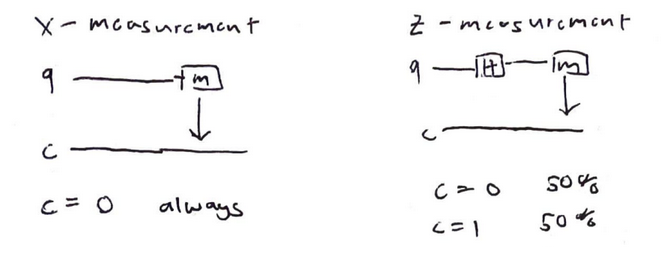 X - measurement
q m
c
c = 0 always
Z - measurement
q H m
c
c = 0 50%
c = 1 50%